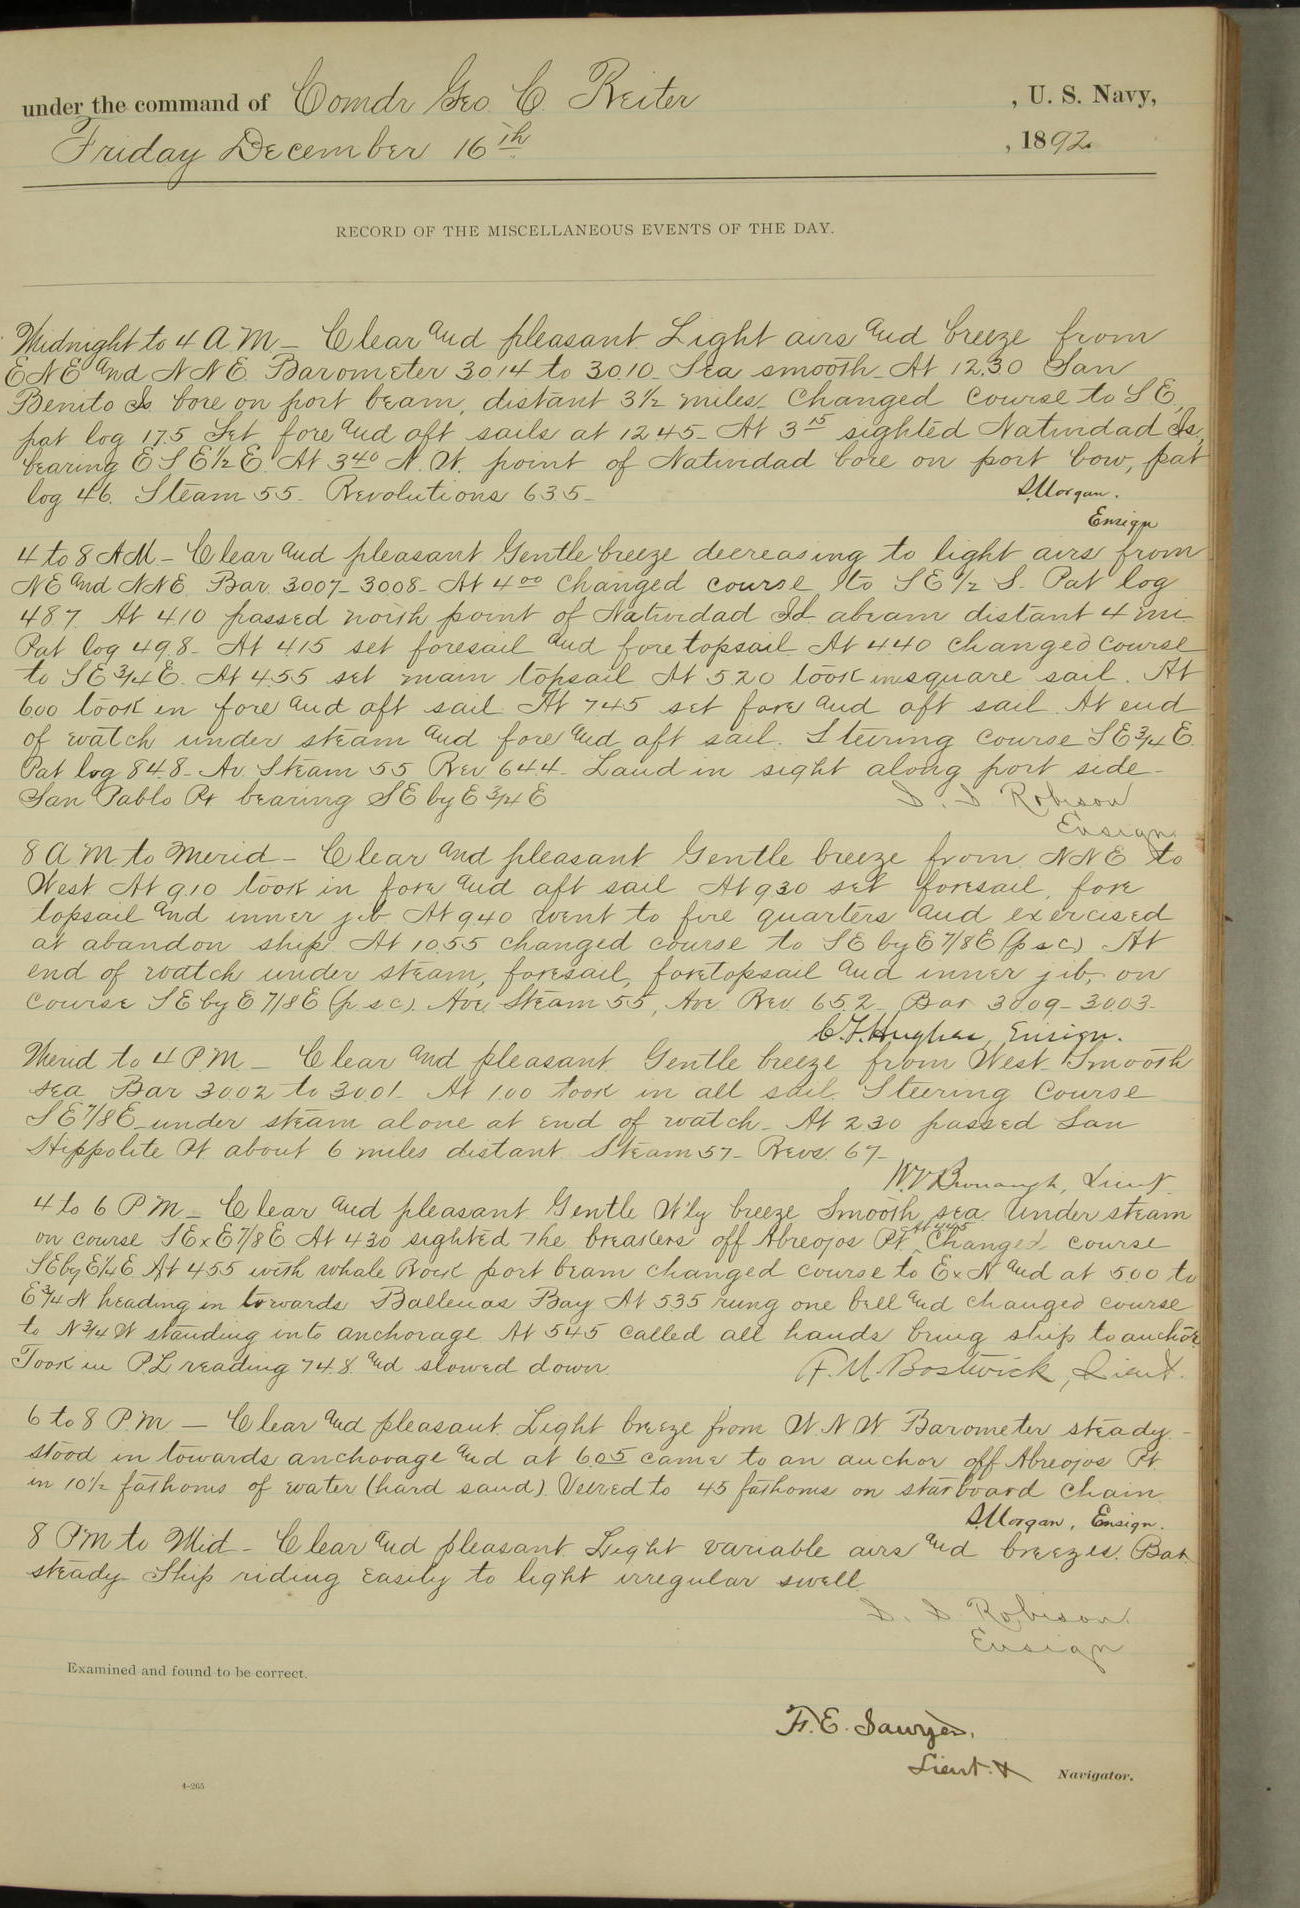 under the command of Comdr Geo. C. Reiter , U. S. Navy,
Friday December 16th , 1892.
RECORD OF THE MISCELLANEOUS EVENTS OF THE DAY.
Midnight to 4 A.M – Clear and pleasant Light airs and breeze from
ENE and NNE. Barometer 30.14 to 30.10 – Sea smooth – At 12.30 San
Benito Is. bore on port beam, distant 3½ miles – Changed course to SE,
pat log 17.5 Set fore and aft sails at 12 45 – At 3 15 sighted Natividad Is,
bearing E S E ½ E. At 3 40 N. W. point of Natividad bore on port bow, pat
log 46. Steam 55 – Revolutions 63.5 –
S. Morgan.
Ensign
4 to 8 AM – Clear and pleasant Gentle breeze decreasing to light airs from
NE and NNE. Bar. 30.07 – 30.08 – At 4 00 changed course to SE ½ S. Pat log
48.7. At 4.10 passed north point of Natividad Id. abeam distant 4 mi –
Pat log 49.8 – At 4.15 set foresail and foretopsail. At 4.40 changed course
to SE ¾ E. At 4.55 set main topsail At 5.20 took in square sail. At
6.00 took in fore and aft sail At 7.45 set fore and aft sail. At end
of watch under steam and fore and aft sail. Steering course SE ¾ E.
Pat log 84.8 – Av. Steam 55 Rev 64.4 – Land in sight along port side –
San Pablo Pt bearing SE by E ¾ E
S. S. Robison
Ensign
8 A M to Merid – Clear and pleasant Gentle breeze from NNE to
West At 9.10 took in fore and aft sail At 9.30 set foresail, fore
topsail and inner jib. At 9.40 went to fire quarters and exercised
at abandon ship. At 10.55 changed course to SE by E 7/8 E (p s c) At
end of watch under steam, foresail, foretopsail and inner jib, on
course SE by E 7/8 E (p. s. c). Ave. Steam 55, Ave Rev. 65.2 Bar 30.09 – 30.03 –
C. F. Hughes, Ensign.
Merid to 4 P.M – Clear and pleasant Gentle breeze from West Smooth
sea Bar 30.02 to 30.01 – At 1.00 took in all sail. Steering course
SE 7/8 E – under steam alone at end of watch – At 2.30 passed San
Hippolite Pt about 6 miles distant. Steam 57 – Revs. 67 –
W.V. Bronaugh, Lieut.
4 to 6 P.M – Clear and pleasant Gentle W'ly breeze Smooth sea. Under steam
on course SExE 7/8 E At 4 30 sighted the breakers off Abreojos Pt. At 4.45 Changed course
SE by E ¼ E At 4 55 with Whale Rock port beam changed course to E x N and at 5 00 to
E ¾ N heading in towards Ballenas Bay At 5 35 rung one bell and changed course
to N ¾ W standing into anchorage At 5 45 called all hands bring ship to anchor
Took in P.L reading 74.8. and slowed down.
F. M. Bostwick, Lieut.
6 to 8 P.M – Clear and pleasant. Light breeze from W.N.W Barometer steady –
stood in towards anchorage and at 6 05 came to an anchor off Abreojos Pt.
in 10½ fathoms of water (hard sand). Veered to 45 fathoms on starboard chain.
S. Morgan, Ensign.
8 PM to Mid – Clear and pleasant. Light variable airs and breezes. Bar.
steady – Ship riding easily to light irregular swell.
S. S. Robison.
Ensign
Examined and found to be correct.
F. E. Sawyer.
Lieut. Navigator.
4–265